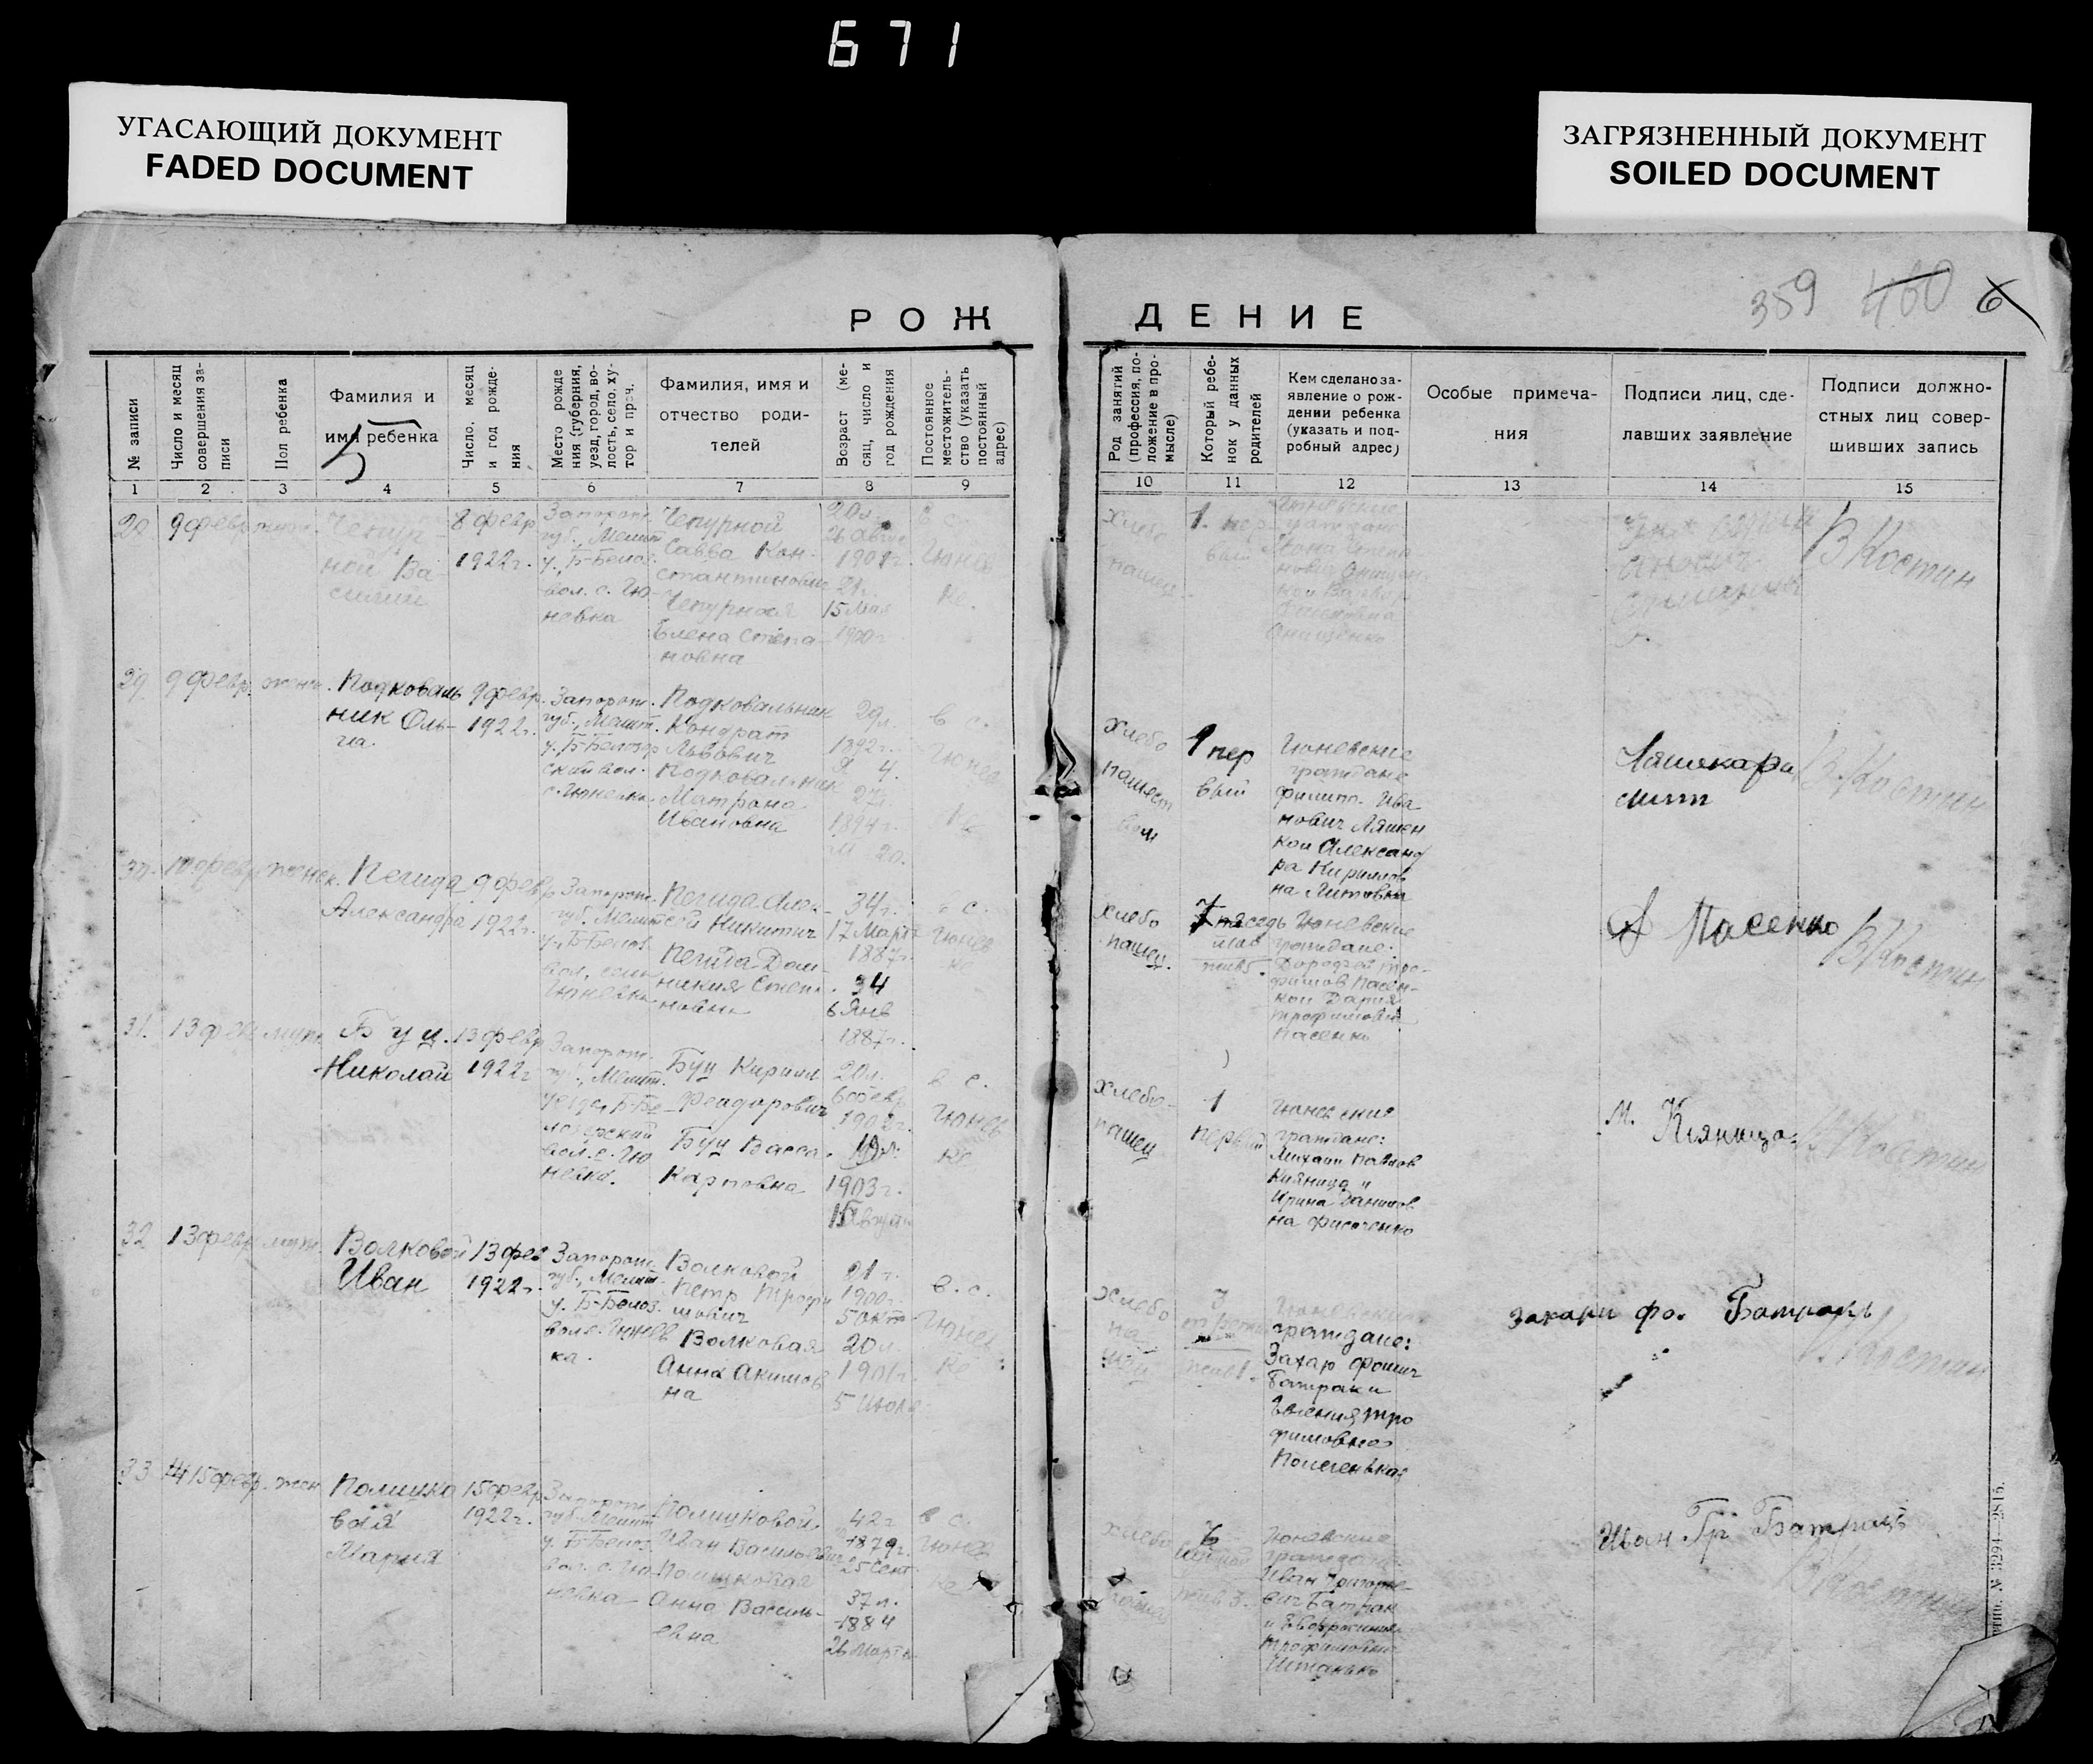 671
УГАСАЮЩИЙ ДОКУМЕНТ
FADED DOCUMENT
ЗАГРЯЗНЕННЫЙ ДОКУМЕНТ
SOILED DOCUMENT
359 460 6
РОЖДЕНИЕ
№ записи
Число и месяц
совершения за-
писи
Пол ребенка
Фамилия и
имя ребенка
5
Число, месяц
и год рожде-
ния
Место рожде
ния (губерния,
уезд, город, во-
лость, село, ху-
тор и проч.
Фамилия, имя и
отчество роди-
телей
Возраст (ме-
сяц, число и
год рождения
Постоянное
местожитель-
ство (указать
постоянный
адрес)
Род занятий
(профессия, по-
ложение в про-
мысле)
Который ребе-
нок у данных
родителей
Кем сделано за-
явление о рож-
дении ребенка
(указать и под-
робный адрес)
Особые примеча-
ния
Подписи лиц, сде-
лавших заявление
Подписи должно-
стных лиц совер-
шивших запись
1 2 3 4 5 6 7 8 9 10 11 12 13 14 15
9 февр
Чепур-
ной Ва-
силий
8 февр
1922 г.
Запорож.
губ., Мелит
у., Б-Белоз.
вол. с. Гю-
невка
Чепурной
Савва Кон-
стантинович
Чепурная
Елена Степа-
новна
20 л.
1901 г.
21 г.
15 Мая
1900 г.
в с.
Гюнев
ке.
хлебо
пашец
1. пер
вый
В Костин
29
9 февр.
женск.
Подковаль
ник Оль-
га.
9 февр.
1922 г.
Запорож.
губ., Мелит.
у., Б-Белозер
ской вол.
с. Гюневка.
Подковальник
Кондрат
Львович
Подковальник
Матрона
Ивановна
29 л.
1892 г.
27 г.
1894 г.
20.
в с.
Гюнев
ке
хлебо
пашест
вом
1 пер
вый
Гюневские
граждане
Филипп. Ива
нович Ляшен
ко и Александ
ра Кириллов
на Литовка
В. Костин
30.
10 февр
женск.
Пегида
Александра
9 февр
1922 г.
Запорож.
губ. Мелит
у., Б-Белоз.
вол., село
Гюневка
Пегида Алек-
сей Никитич
Пегида Дом-
никия Степа-
новна
34 г.
17 Марта
1887 г.
34
6 Янв
1887 г.
в с.
Гюнев
ке
хлебо
пашец.
7 седь
мая
Гюневские
граждане:
Дорофей Тро-
фимов Пасен-
ко и Дария
Трофимовна
Пасенко
А Пасенко
В Костин
31.
13 фев
муж.
Буц.
Николай
13 февр
1922 г
Запорож.
губ., Мелит.
уезда, Б-Бе-
лозерский
вол. с. Гю
невка.
Буц Кирилл
Феодорович
Буц Васса
Карповна
20 л.
6 февр
1902 г.
19 л.
1903 г.
в с.
Гюнев
ке
хлебо-
пашец
1
первый
Гюневския
граждане:
Михаил Павлов
Кияница и
Ирина Данилов
на Фисоченко
М. Кияница
В Костин
32
13 февр
муж.
Волковой
Иван
13 фев
1922 г.
Запорож.
губ., Мелит.
у. Б-Белоз.
вол с. Гюнев
ка.
Волковой
Петр Трофи
мович
Волковая
Анна Акимов
на
21 г.
1900 г.
5 окт
20 л.
1901 г.
5 Июля
в. с.
Гюнев
ке
хлебо
па
шец
3
Гюневские
граждане:
Захар Фомич
Батрак и
Евгения Тро
фимовна
Захари фо. Батракъ
В. Костин
33
15 февр.
жен
Полицко
вая
Мария
15 февр
1922 г.
Запорож.
губ. Мелит
у. Б-Белоз.
вол. с. Гю
невка
Полицковой
Иван Васильевич
Полицковая
Анна Василь-
евна
42 г
1879 г.
25 Сент
37 л.
1884
26 Марта
в с.
Гюнев
ке
хлебо
Гюневские
граждане:
Иван Григорье-
вич Батрак
и Евфросиния
Трофимовна
Штанько
Иван Гр Батракъ
В Костин
Типо. № 3294—2815.